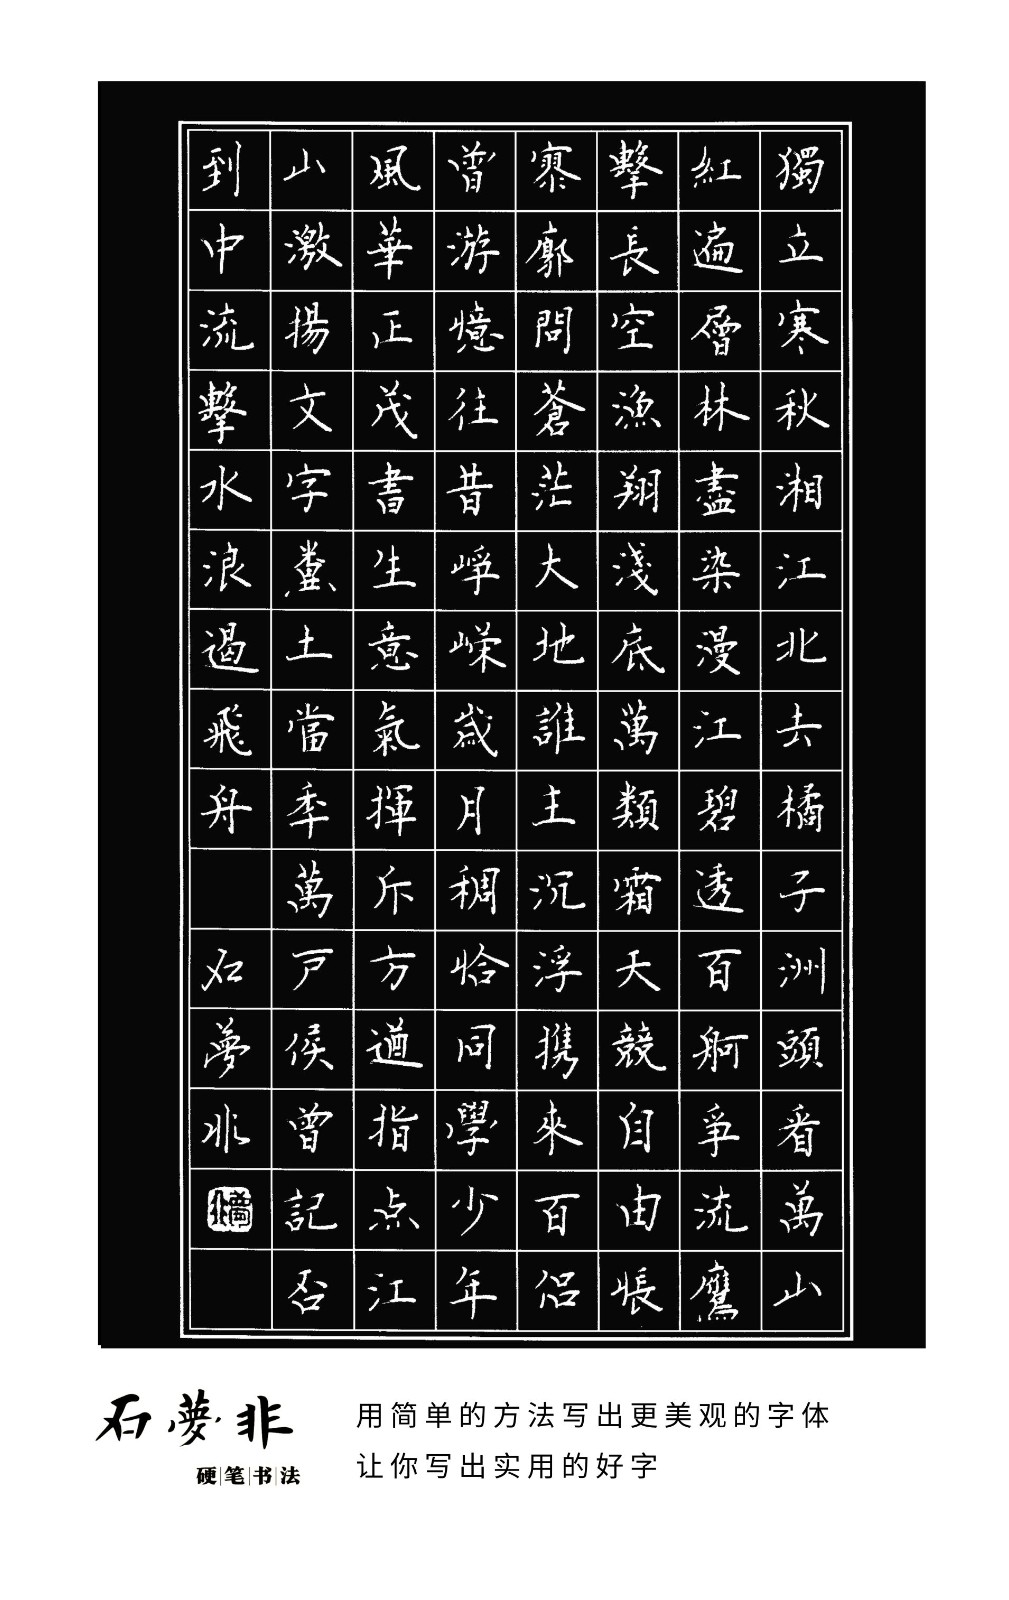 獨立寒秋湘江北去橘子洲頭看萬山
紅遍層林盡染漫江碧透百舸爭流鷹
擊長空漁翔淺底萬類霜天競自由悵
寥廓問蒼茫大地誰主沉浮携來百侣
曾游憶往昔崢嶸歲月稠恰同學少年
風華正茂書生意氣揮斥方遒指点江
山激揚文字糞土當年萬戶侯曾記否
到中流擊水浪遏飛舟 石夢非
石夢非
硬笔书法
用简单的方法写出更美观的字体
让你写出实用的好字